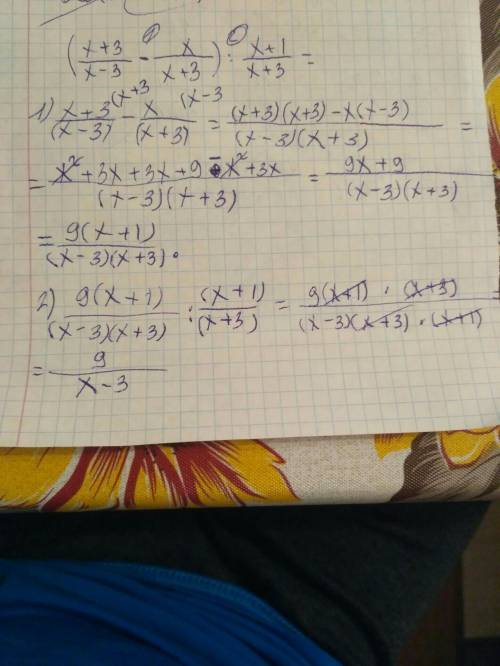 (x+3/x-3 - x/x+3) : x+1/x+3 =
1) x+3/(x-3) (x+3 - x/(x+3) (x-3 = (x+3)(x+3)-x(x-3)/(x-3)(x+3) =
= x²+3x+3x+9-x²+3x/(x-3)(x+3) = 9x+9/(x-3)(x+3)
= 9(x+1)/(x-3)(x+3).
2) 9(x+1)/(x-3)(x+3) : (x+1)/(x+3) = 9(x+1)·(x+3)/(x-3)(x+3)·(x+1)
= 9/x-3